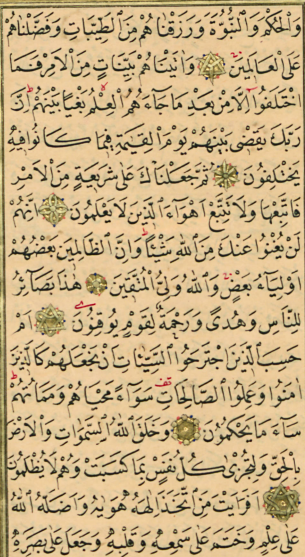 وَالْحُكْمَ وَالنُّبُوَّةَ وَرَزَقْنَاهُمْ مِنَ الطَّيِّبَاتِ وَفَضَّلْنَاهُمْ
عَلَى الْعَالَمِينَ وَاٰتَيْنَاهُمْ بَيِّنَاتٍ مِنَ الْاَمْرِ فَمَا
اخْتَلَفُوٓا اِلَّا مِنْ بَعْدِ مَا جَٓاءَهُمُ الْعِلْمُ بَغْيًا بَيْنَهُمْ اِنَّ
رَبَّكَ يَقْضِي بَيْنَهُمْ يَوْمَ الْقِيٰمَةِ فِيمَا كَانُوا فِيهِ
يَخْتَلِفُونَ ثُمَّ جَعَلْنَاكَ عَلٰى شَرِيعَةٍ مِنَ الْاَمْرِ
فَاتَّبِعْهَا وَلَا تَتَّبِعْ اَهْوَٓاءَ الَّذِينَ لَا يَعْلَمُونَ اِنَّهُمْ
لَنْ يُغْنُوا عَنْكَ مِنَ اللّٰهِ شَيْئًا وَاِنَّ الظَّالِمِينَ بَعْضُهُمْ
اَوْلِيَٓاءُ بَعْضٍ وَاللّٰهُ وَلِيُّ الْمُتَّقِينَ هٰذَا بَصَٓائِرُ
لِلنَّاسِ وَهُدًى وَرَحْمَةٌ لِقَوْمٍ يُوقِنُونَ اَمْ
حَسِبَ الَّذِينَ اجْتَرَحُوا السَّيِّـَٔاتِ اَنْ نَجْعَلَهُمْ كَالَّذِينَ
اٰمَنُوا وَعَمِلُوا الصَّالِحَاتِ سَوَٓاءً مَحْيَاهُمْ وَمَمَاتُهُمْ
سَٓاءَ مَا يَحْكُمُونَ وَخَلَقَ اللّٰهُ السَّمٰوَاتِ وَالْاَرْضَ
بِالْحَقِّ وَلِتُجْزٰى كُلُّ نَفْسٍ بِمَا كَسَبَتْ وَهُمْ لَا يُظْلَمُونَ
اَفَرَاَيْتَ مَنِ اتَّخَذَ اِلٰهَهُ هَوٰيهُ وَاَضَلَّهُ اللّٰهُ
عَلٰى عِلْمٍ وَخَتَمَ عَلٰى سَمْعِهِ وَقَلْبِهِ وَجَعَلَ عَلٰى بَصَرِهِ